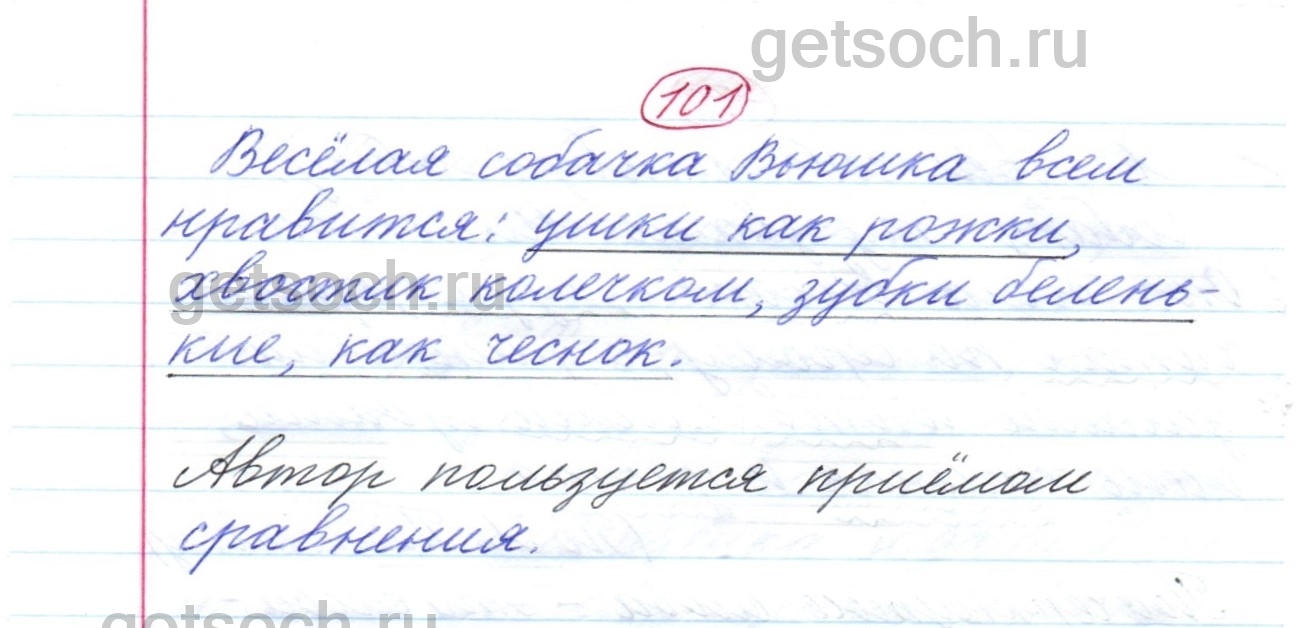 getsoch.ru
101
Весёлая собачка Вьюшка всем
нравится: ушки как рожки,
getsoch.ru
хвостик колечком, зубки белень-
кие, как чеснок.
Автор пользуется приёмом
сравнения.
getsoch.ru